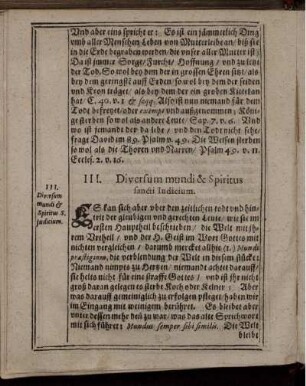 Vnd aber eins spricht er: Es ist ein jämmerlich Ding
vmb aller Menschen Leben von Mutterleibe an / biß sie
in die Erde begraben werden / die vnser aller Mutter ist
Da ist immer Sorge / Furchte / Hoffnung / vnd zu letzt
der Tod. So wol bey dem der in grossen Ehren sitzt / als
bey dem geringsten auff Erden: so wol bey dem der seiden
vnd Kron träget / als bey dem der ein groben Kittel an
hat. C. 40. v. 1 & sqq. Also ist nun niemand für dem
Tode befreyet / oder exempt vnd außgenommen: Kön-
ge sterben so wol als andere Leute / Sap. 7. v. 6. Vnd
wo ist jemandt der da lebe / vnd den Tode nicht sehe /
fragt David im 89. Psalm v. 49. Die Weisen sterben
so wol als die Thoren vnd Narren / Psalm 49. v. 11.
Eccles. 2. v. 16.
III. Diversum mundi & Spiritus
sancti Iudicium.
III.
Diversum
mundi &
Spiritus S.
judicium.
ES kan sich aber vber den zeitlichen todt vnd hin-
tritt der gläubigen vnd gerechten Leute / wie sie im
ersten Haupttheil beschrieben / die Welt mit jhrem
Vrtheil / vnd der H. Geist im Wort Gottes mit
nichten vergleichen / darumb
præstigium, die verblendung der Welt in diesem stücke:
Niemand nimpts zu Hertzen / niemandt achtet darauff
sie helts nicht für eine straffe Gottes / vnd ist jhr nicht
groß daran gelegen es sterbe Koch oder Kelner: Aber
was darauff gemeiniglich zu erfolgen pfleget / haben wir
im Eingang mit wenigem berühret. Es bleibet aber
vnter dessen mehr denn zu war / was das alte Sprichwort
mit sich führet: Mundus semper sibi similis. Die Welt
bleibt